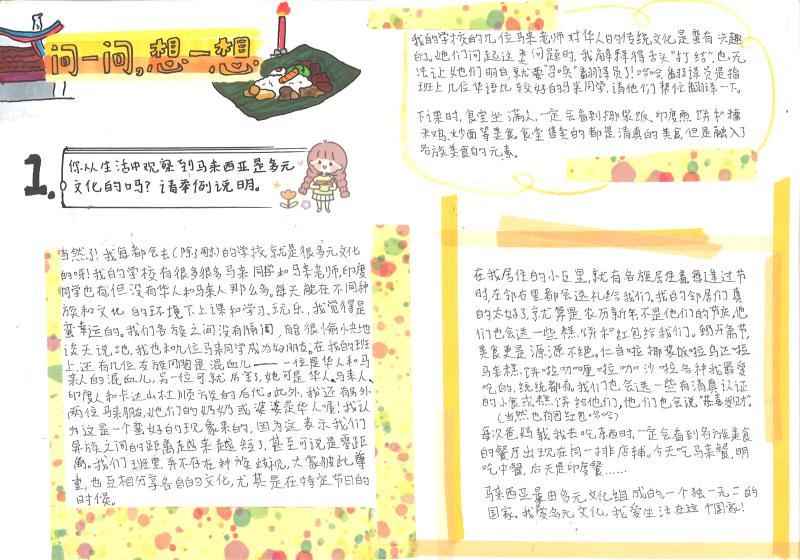 问一问,想一想.
1.
你从生活中观察到马来西亚是多元
文化的吗?请举例说明。
当然了!我每都会去(除了周末)的学校就是很多元文化
的呀!我的学校有很多很多马来同学和马来老师,印度
同学也有,但没有华人和马来人那么多。每天能在不同种
族和文化的环境下上课和学习、玩乐,我觉得是
蛮幸运的。我们各族之间没有隔阂,能很愉快地
谈天说地,我也和几位马来同学成为好朋友。在我的班
上,还有几位友族同胞是混血儿——一位是华人和马
来人的混血儿,另一位可就厉害了,她可是华人、马来人、
印度人和卡达山杜顺族的后代。此外,我还有另外
两位马来朋友,她们的奶奶或婆婆是华人喔!我认
为这是一个蛮好的现象来的,因为这表示我们
异族之间的距离越来越短了,甚至可说是零距
离。我们班里并不存在种族歧视,大家彼此尊
重,也互相分享各自的文化,尤其是在特定节日的
时候。
我的学校的几位马来老师对华人的传统文化是蛮有兴趣
的。她们问起这类问题时,我解释得舌头"打结",也无
法让她们明白,就要"召唤"翻译员了!哈哈,翻译员是指
班上几位华语比较好的马来同学,请他们帮忙翻译一下。
下课时,食堂坐满人,一定会看到椰浆饭、印度煎饼和糯
米鸡、炒面等美食,食堂售卖的都是清真的美食,但是融入了
各族美食的元素。
在我居住的小区里,就有各族居住着,每逢过节
时,左邻右里都会送礼给我们。我的邻居们真
的太好了,就算是农历新年不是他们的节庆,他
们也会送一些糕饼和红包给我们。到开斋节,
美食更是源源不绝。仁当啦、椰浆饭啦、乌达啦、
马来糕饼啦、咖喱啦、咖沙啦,各种我最爱
吃的,统统都有。我们也会送一些有清真认证
的小食或糕饼给他们,他们也会说"恭喜发财"。
(当然也有包红包,哈哈)
每次爸妈载我去吃东西时,一定会看到各族美食
的餐厅出现在同一排店铺。今天吃马来餐,明
吃中餐,后天是印度餐……
马来西亚是由多元文化组成的,一个独一无二的
国家,我爱多元文化,我爱生活在这个国家!